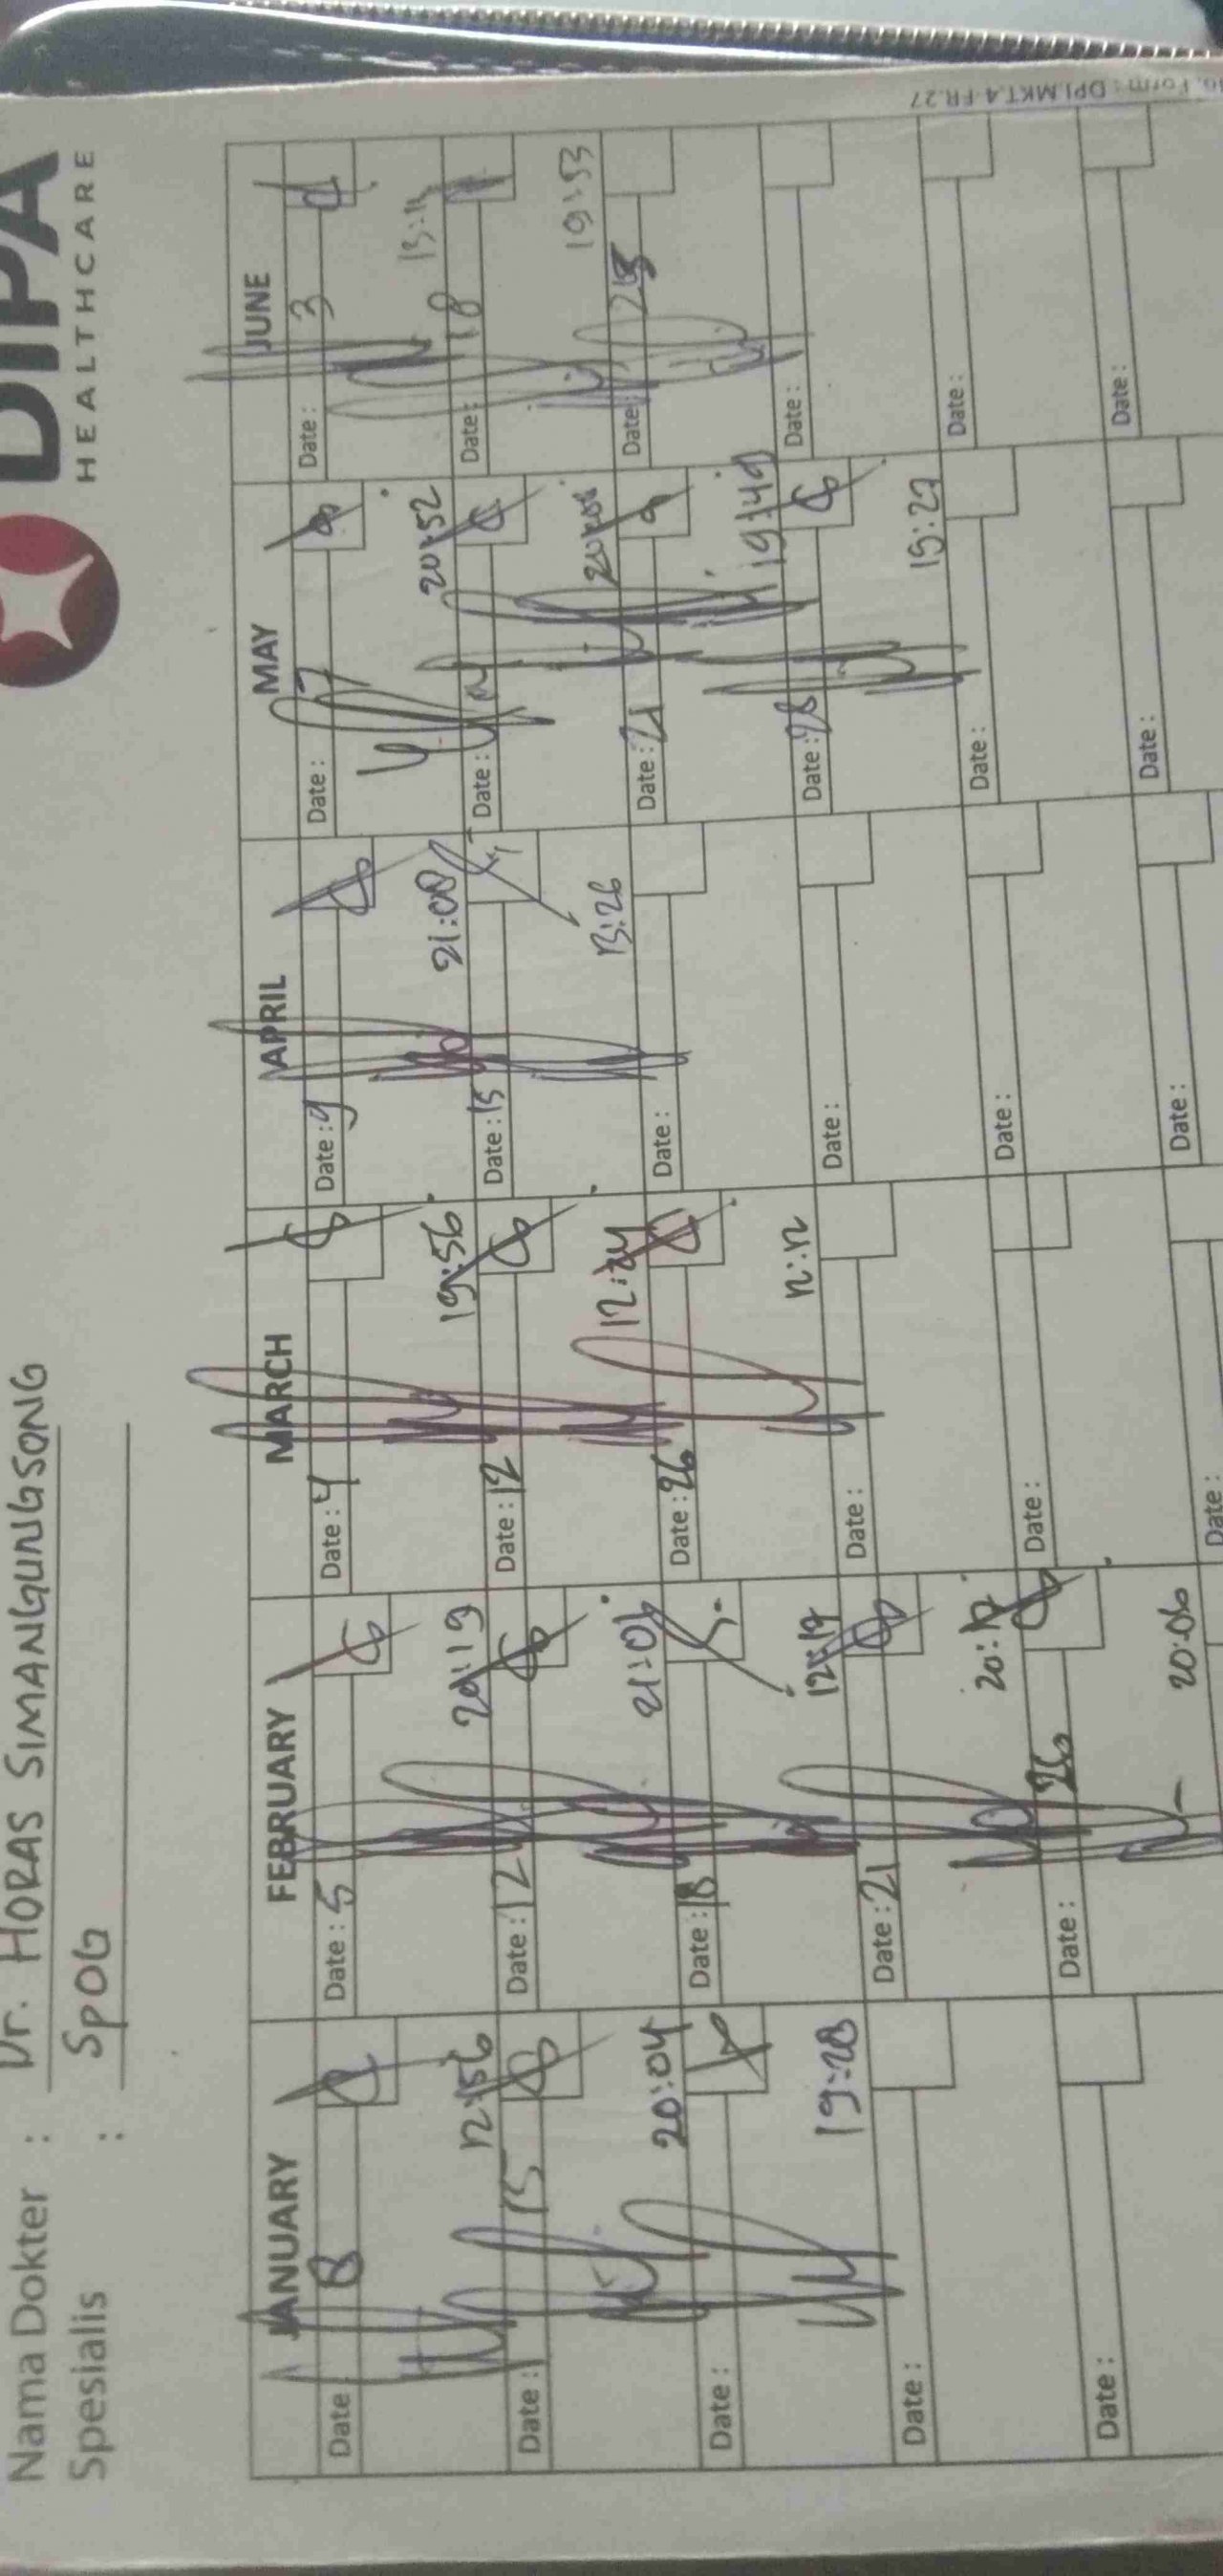 DIPA
HEALTHCARE
Nama Dokter : Dr. HORAS SIMANGUNGSONG
Spesialis : SpOG
JANUARY FEBRUARY MARCH APRIL MAY JUNE
Date : 8 Date : 5 Date : 4 Date : 9 Date : 7 Date : 3
12:56 20:19 19:56 21:08 20:52
Date : 15 Date : 12 Date : 12 Date : 15 Date : Date : 18
20:04 21:06 12:24 13:26 19:53
Date : Date : 18 Date : 26 Date : Date : 21 Date :
19:28 12:19 19:49
Date : Date : 21 Date : Date : Date : 28 Date :
20:17 15:27
Date : Date : 26 Date : Date : Date : Date :
20:06
Date : Date : Date : Date :
No. Form : DPI.MKT.4-FR.27